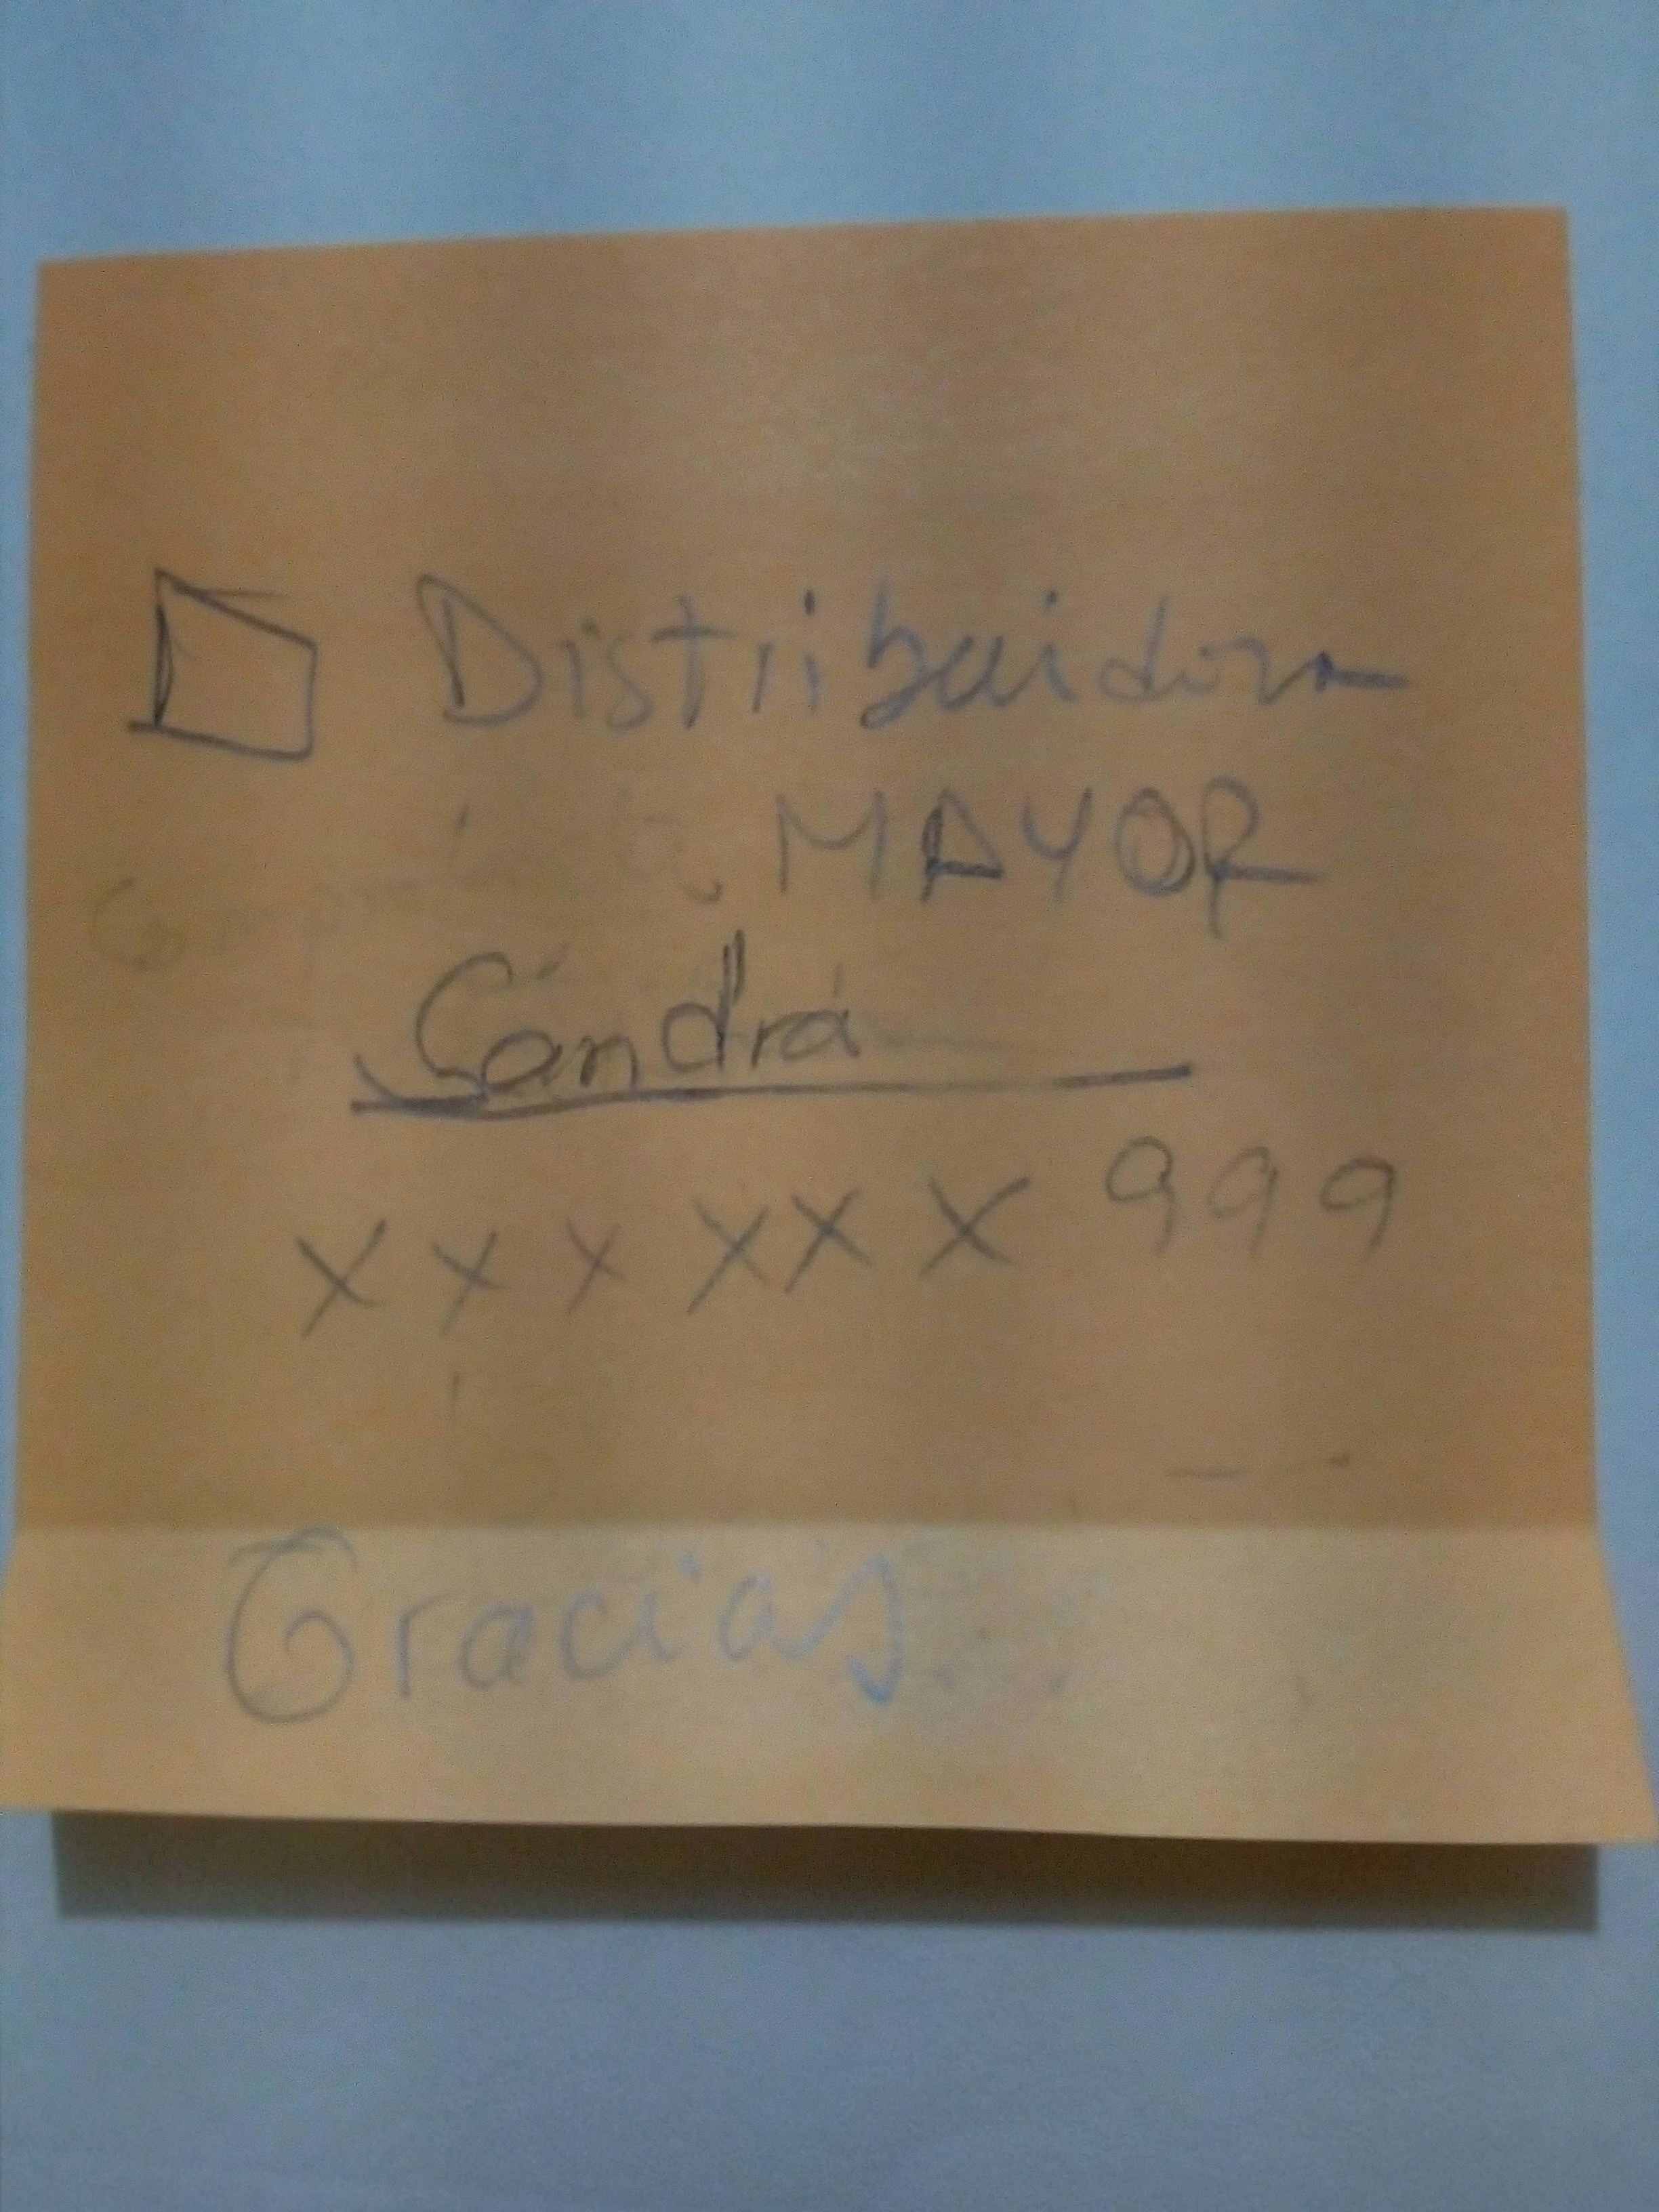 Distribuidora
MAYOR
Sandra
xxxxxx999
Gracias